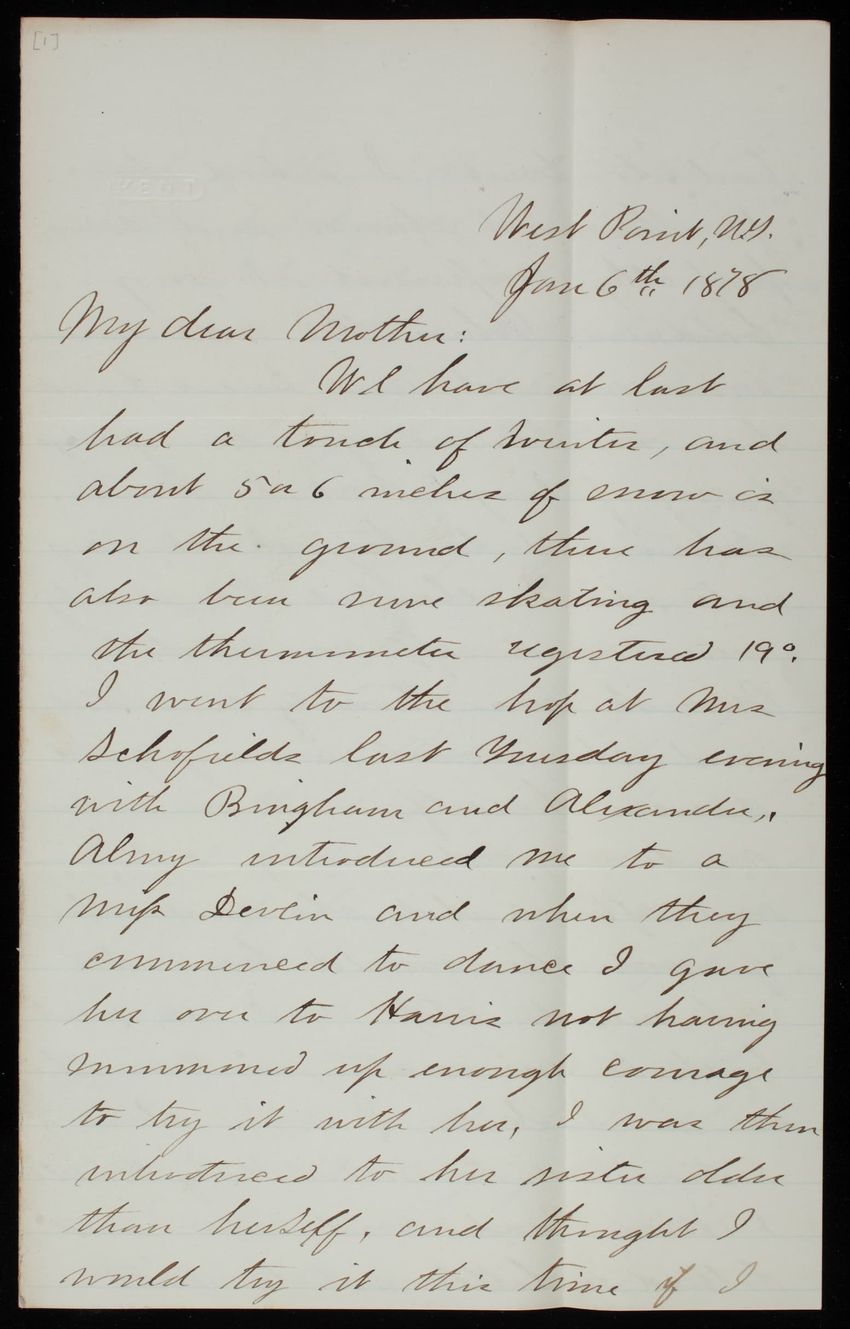 [1]
KENT
West Point, N.Y.
Jan 6th 1878
My dear Mother:
We have at last
had a touch of Winter, and
about 5 or 6 inches of snow is
on the ground, there has
also been some skating and
the thermometer registered 19°.
I went to the hop at Mrs
Schofields last Tuesday evening
with Bingham and Alexander,.
Almy introduced me to a
Miss Devlin and when they
commenced to dance I gave
her over to Harris not having
summoned up enough courage
to try it with her, I was then
introduced to her sister older
than herself, and thought I
would try it this time if I